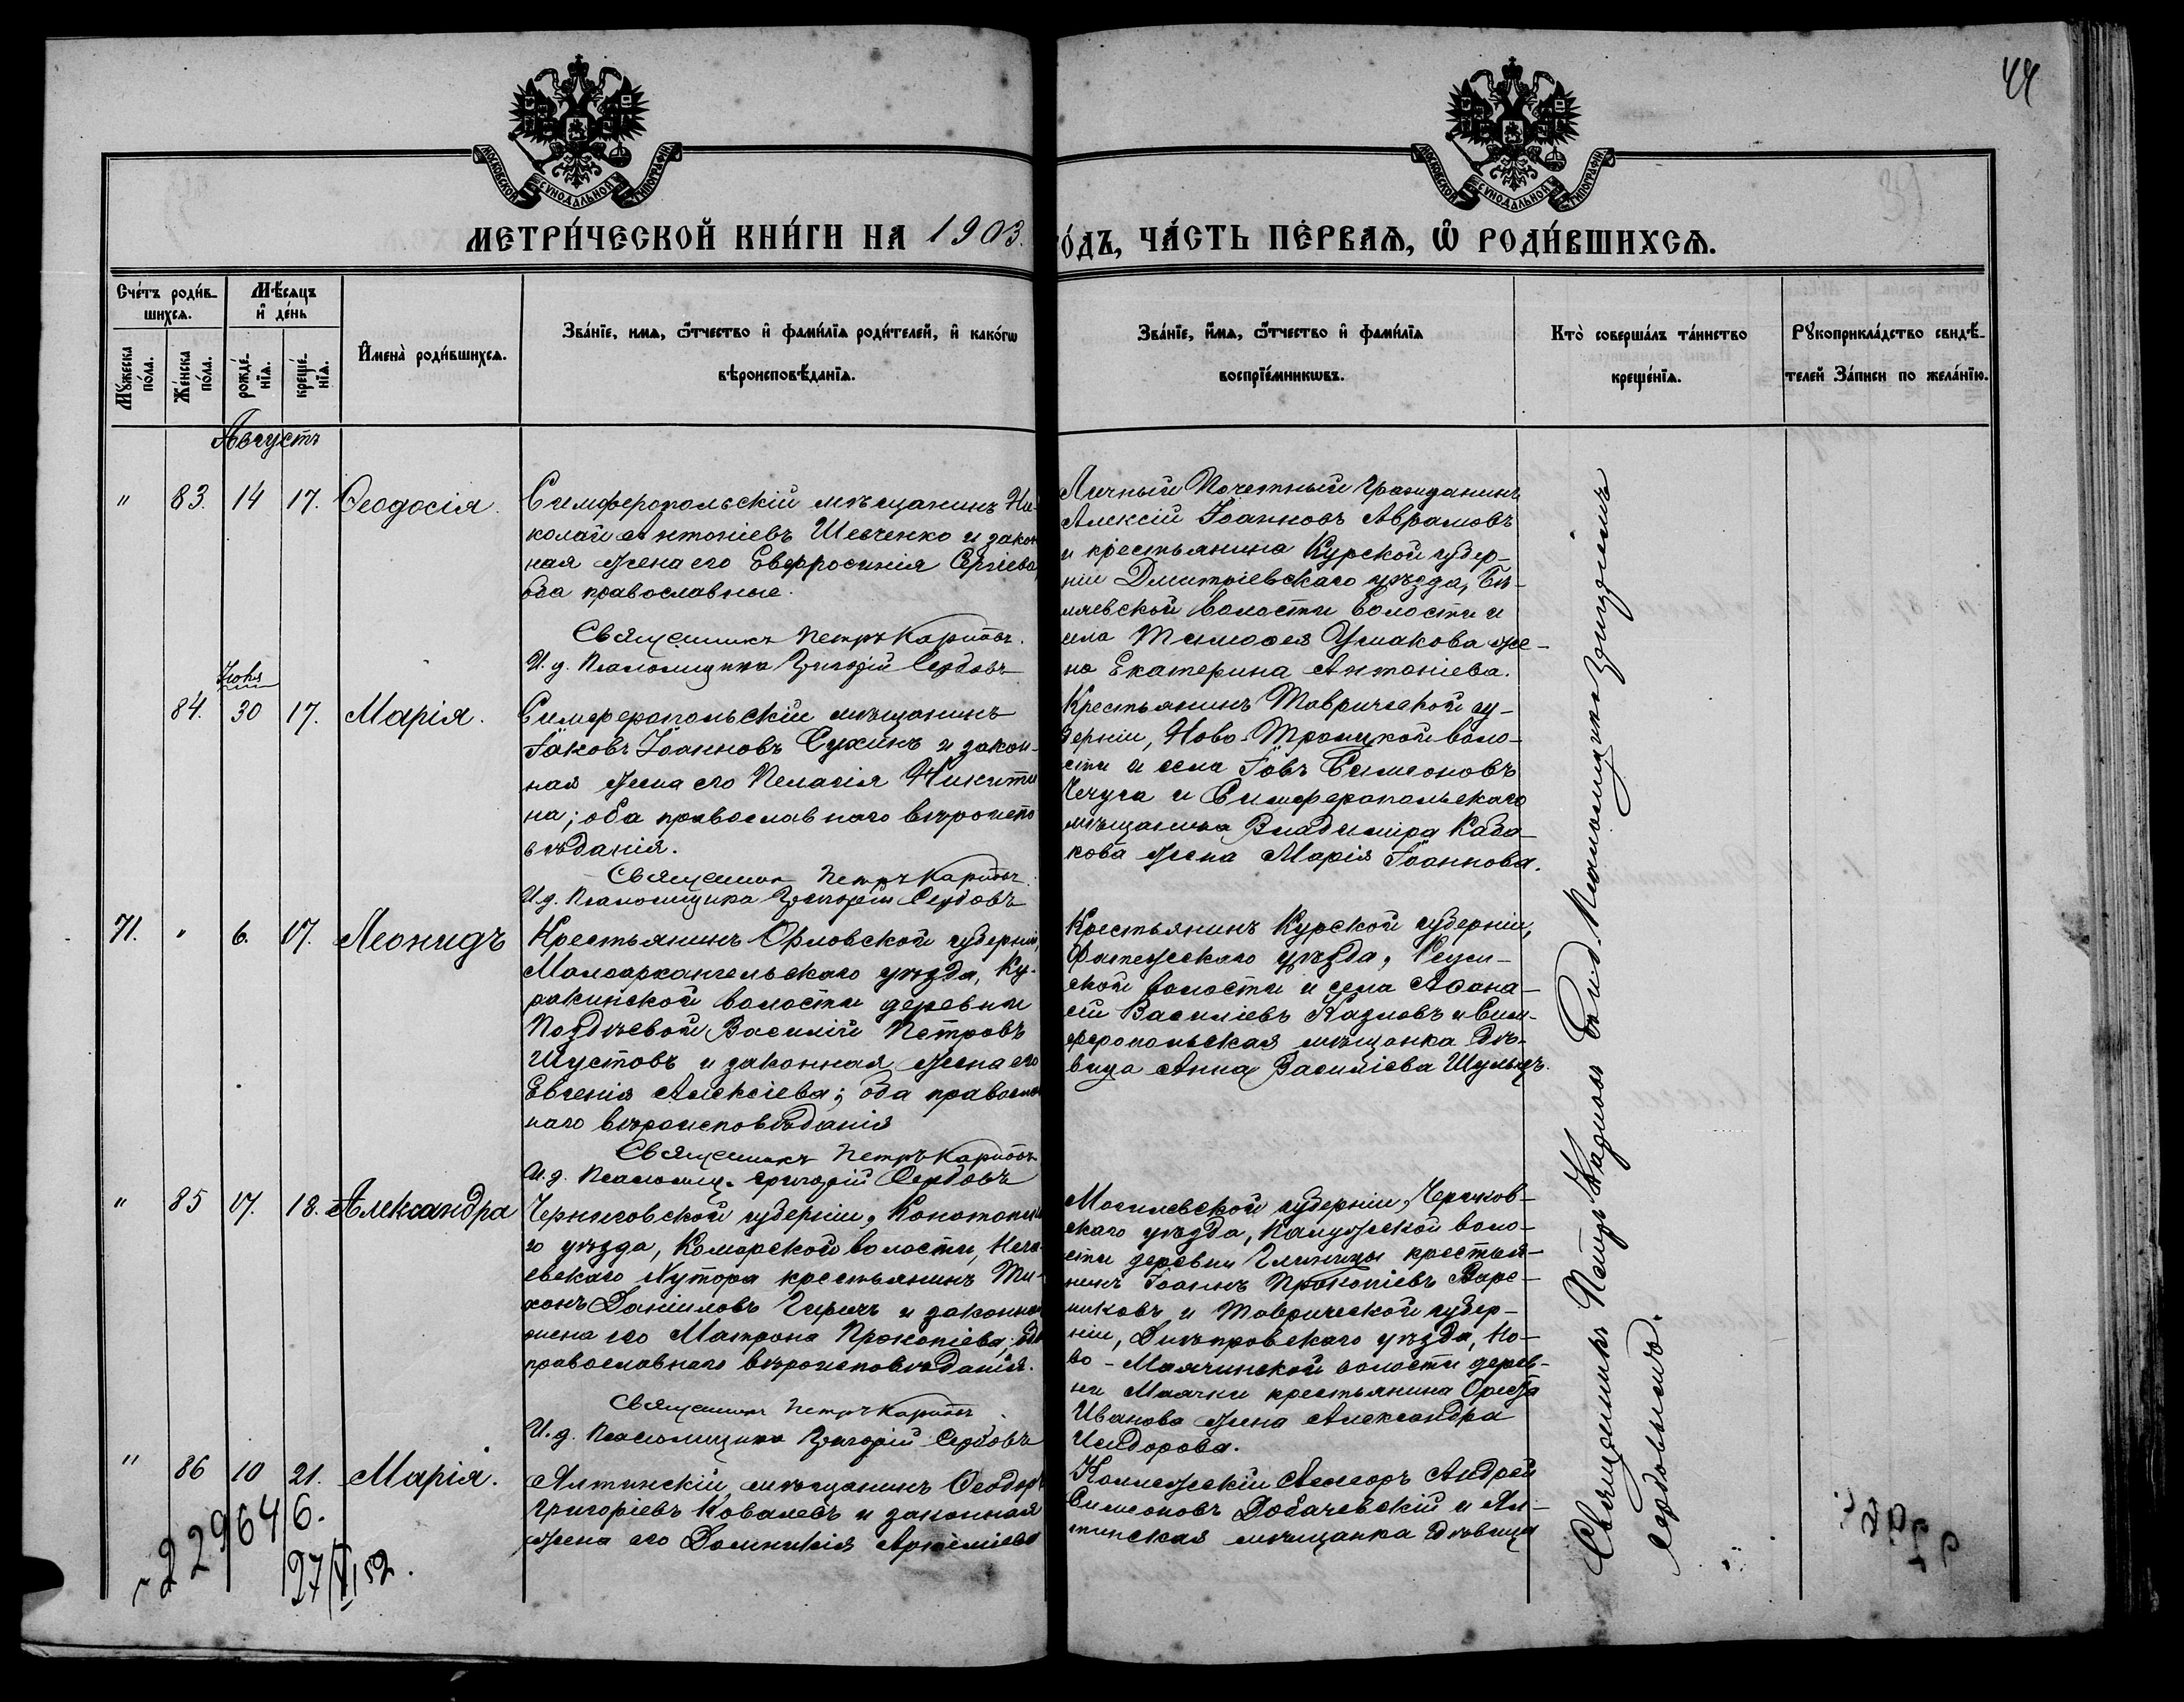 44
МОСКОВСКОЙ СѴНОДАЛЬНОЙ ТИПОГРАФІИ
МОСКОВСКОЙ СѴНОДАЛЬНОЙ ТИПОГРАФІИ
МЕТРИ́ЧЕСКОЙ КНИ́ГИ НА 1903.
ГО́ДЪ, ЧА́СТЬ ПЕ́РВАЯ, Ѡ҆ РОДИ́ВШИХСЯ.
Сче́тъ роди́в-
шихся.
Мѣ́сяцъ
и҆ де́нь
Мꙋ́жеска по́ла.
Же́нска по́ла.
рожде́-
нія.
креще́-
нія.
И҆мена̀ роди́вшихся.
Зва́ніе, имя, ѻ҆́тчество и҆ фами́лія роди́телей, и҆ како́гѡ
вѣроисповѣ́данія.
Зва́ніе, и҆́мя, ѻ҆́тчество и҆ фами́лія
воспріе́мникѡвъ.
Кто̀ соверша́лъ та́инство
креще́нія.
Рꙋкоприкла́дство свидѣ́-
телей За́писи по жела́нію.
Августъ
" 83. 14 17. Ѳеодосія.
Симферопольскій мѣщанинъ Ни-
колай Антоніевъ Шевченко и закон
ная жена его Евфросинія Сергіева,
оба православные.
Священникъ Петръ
И. д. Псаломщика Григорій Сербовъ
Личный Почетный Гражданинъ
Алексій Іоанновъ Аврамовъ
и крестьянина Курской губер-
ніи Дмитріевскаго уѣзда,
волости волости и
села Тимоѳея Ушакова же-
на Екатерина Антоніева.
Іюнь
84. 30 17. Марія.
Симферопольскій мѣщанинъ
Іаковъ Іоанновъ Сухинъ и закон-
ная жена его Пелагія Никити
на; оба православнаго вѣроиспо
вѣданія.
Священник Петръ
И. д. Псаломщика Григорій Сербовъ
Крестьянинъ Таврической гу-
берніи, Ново-Троицкой воло-
сти и села Іовъ Симеоновъ
Чечуга и Симферопольскаго
мѣщанина Владиміра Каба-
кова жена Марія Іоаннова.
71. " 6. 17. Леонидъ
Крестьянинъ Орловской губерніи,
Малоархангельскаго уѣзда, Ку-
ракинской волости деревни
Поздѣевой Василій Петровъ
Шустовъ и законная жена его
Евгенія Алексіева; оба правосла
наго вѣроисповѣданія
Священникъ Петръ
И. д. Псаломщ. Григорій Сербовъ
Крестьянинъ Курской губерніи,
Фатежскаго уѣзда,
ской волости и села Аѳана-
сій Василіевъ Козловъ и Сим-
феропольская мѣщанка дѣ-
вица Анна Василіева Шульцъ.
" 85 17. 18. Александра
Черниговской губерніи, Конотопска
го уѣзда, Коморской волости,
евскаго Хутора крестьянинъ Ти-
хонъ Даніиловъ и законная
жена его Матрона Прокопіева; оба
православнаго вѣроисповѣданія.
Священник Петръ
И. д. Псаломщика Григорій Сербовъ
Могилевской губерніи, Чериков-
скаго уѣзда, воло-
сти деревни Глинищы крестья-
нинъ Іоаннъ Прокопіевъ Варе-
никовъ и Таврической губер-
ніи, Днѣпровскаго уѣзда, Но-
во-Маячинской волости дерев-
ни Маячки крестьянина Ореста
Иванова жена Александра
Исидорова.
" 86 10 21. Марія.
Ялтинскій мѣщанинъ Ѳеодоръ
Григоріевъ Ковалевъ и законная
жена его Домникія Артеміева
Коллежскій Асессоръ Андрей
Симеоновъ Добачевскій и Ял-
тинская мѣщанка дѣвица
229646.
27/VI 52.
Священникъ Петръ псаломщикъ
Сербовымъ.